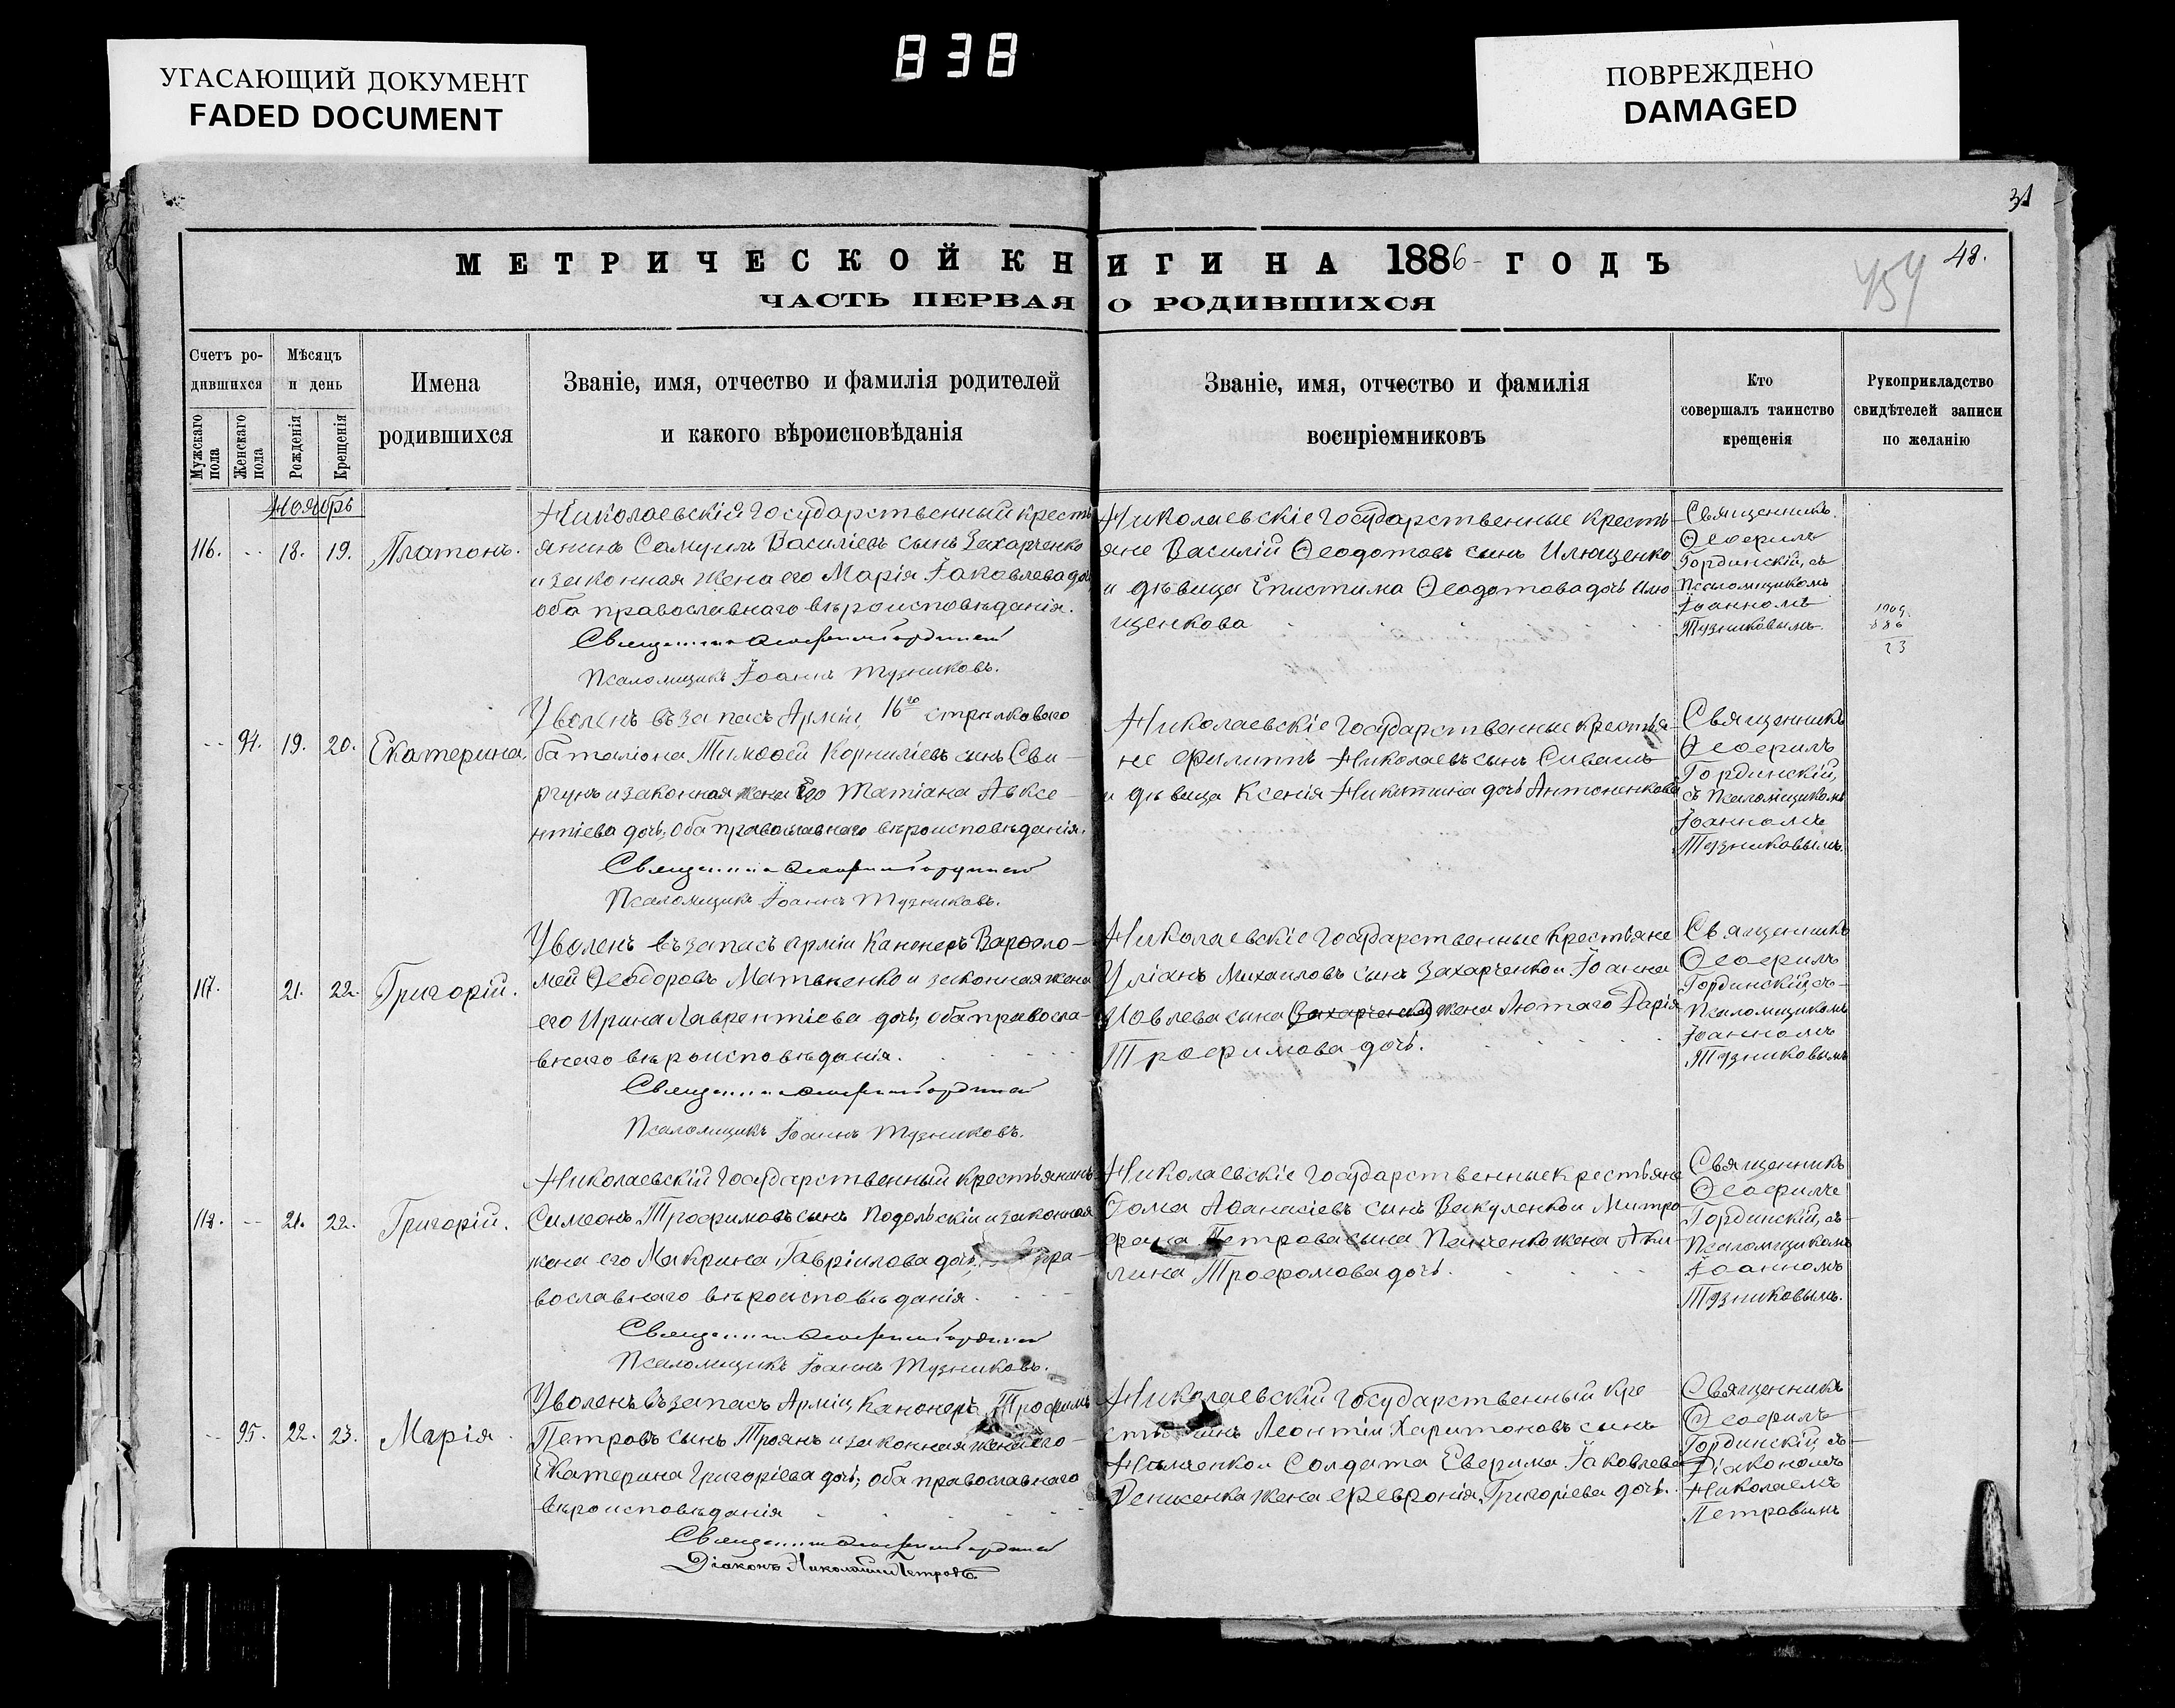 838
УГАСАЮЩИЙ ДОКУМЕНТ
FADED DOCUMENT
ПОВРЕЖДЕНО
DAMAGED
31
МЕТРИЧЕСКОЙ КНИГИ НА 1886 ГОДЪ
48.
ЧАСТЬ ПЕРВАЯ О РОДИВШИХСЯ
Счетъ ро-
дившихся
Мужскаго
пола
Женскаго
пола
Мѣсяцъ
и день
Рожденія
Крещенія
Имена
родившихся
Званіе, имя, отчество и фамилія родителей
и какого вѣроисповѣданія
Званіе, имя, отчество и фамилія
воспріемниковъ
Кто
совершалъ таинство
крещенія
Рукоприкладство
свидѣтелей записи
по желанію
Ноябрь
116. 18. 19. Платонъ.
Николаевскій Государственный кресть
янинъ Самуилъ Василіевъ сынъ Захарченко
и законная жена его Марія Іаковлева доч
оба православнаго вѣроисповѣданія.
Священникъ Ѳеофилъ Гординскій
Псаломщикъ Іоаннъ Тузниковъ.
Николаевскіе Государственные кресть
яне Василій Ѳеодотовъ сынъ Илющенко
и дѣвица Епистима Ѳеодотова дочь Илю
щенкова
Священникъ
Ѳеофилъ
Гординскій, съ
Псаломщикомъ
Іоанномъ
Тузниковымъ.
1909.
886
23
94. 19. 20. Екатерина.
Уволенъ въ запасъ Арміи, 16го стрѣлковаго
баталіона Тимоѳей Корниліевъ сынъ Сви-
ргунъ и законная жена его Татіана Авксе-
нтіева дочь, оба православнаго вѣроисповѣданія.
Священникъ Ѳеофилъ Гординскій
Псаломщикъ Іоаннъ Тузниковъ.
Николаевскіе Государственные крестья-
не Филиппъ Николаевъ сынъ Сивашъ
и дѣвица Ксенія Никитина дочь Антоненкова
Священникъ
Ѳеофилъ
Гординскій,
съ Псаломщикомъ
Іоанномъ
Тузниковымъ.
117. 21. 22. Григорій.
Уволенъ въ запасъ арміи Канонеръ Варѳоло-
мей Ѳеодоровъ Матвѣенко и законная жена
его Ирина Лаврентіева дочь, оба правосла-
внаго вѣроисповѣданія.
Священникъ Ѳеофилъ Гординскій
Псаломщикъ Іоаннъ Тузниковъ.
Николаевскіе Государственные крестьяне
Уліанъ Михаиловъ сынъ Захарченко и Іоанна
Іовлева сына (Захарченко) жена Лютаго Дарія
Трофимова дочь.
Священникъ
Ѳеофилъ
Гординскій, съ
Псаломщикомъ
Іоанномъ
Тузниковымъ
118. 21. 22. Григорій.
Николаевскій Государственный крестьянинъ
Симеонъ Трофимовъ сынъ Подольскій и законная
жена его Макрина Гавріилова дочь, пра-
вославнаго вѣроисповѣданія.
Священникъ Ѳеофилъ Гординскій
Псаломщикъ Іоаннъ Тузниковъ.
Николаевскіе Государственные крестьяне
Ѳома Аѳанасіевъ сынъ Вакуленко и Митро
фана Петрова сына Панченко жена Аки-
лина Трофомова дочь.
Священникъ
Ѳеофилъ
Гординскій, съ
Псаломщикомъ
Іоанномъ
Тузниковымъ.
95. 22. 23. Марія.
Уволенъ въ запасъ Арміи, Канонеръ Трофимъ
Петровъ сынъ Троянъ и законная жена его
Екатерина Григоріева дочь, оба православнаго
вѣроисповѣданія
Священникъ Ѳеофилъ Гординскій
Діаконъ Николай Петровъ.
Николаевскій Государственный кре
Леонтій Харитоновъ сынъ
и Солдата Еврима Іаковлева
Денисенка жена Февронія Григоріева дочь.
Священникъ
Ѳеофилъ
Гординскій, съ
Діакономъ
Николаемъ
Петровымъ